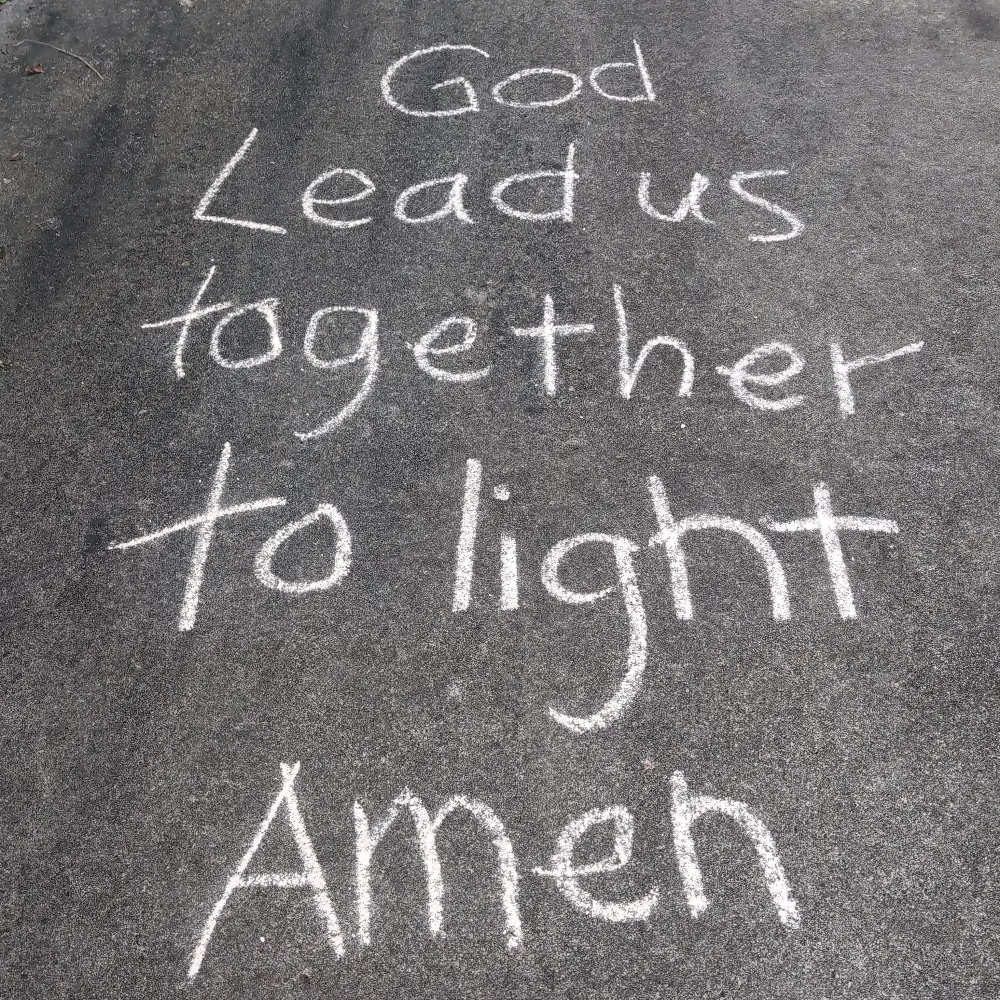 God
Lead us
together
to light
Amen